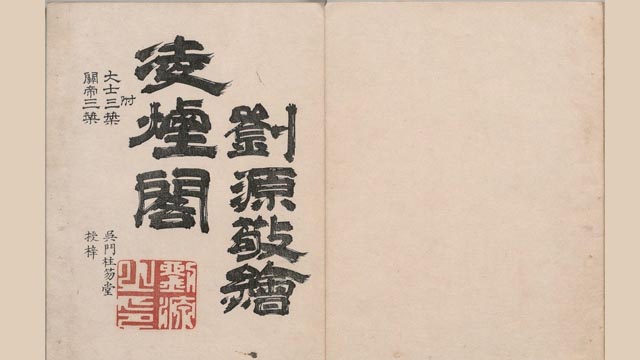 劉源敬繪
凌煙閣
附
大士三葉
關帝三葉
吳門柱笏堂
授梓
劉源
之印